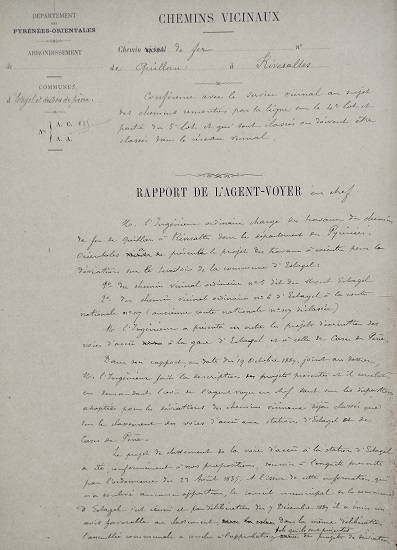 DÉPARTEMENT
DES
PYRÉNÉES-ORIENTALES
ARRONDISSEMENT
de
COMMUNES
d'Estagel et de Cases de Pène
N°
A. C.
A. A.
CHEMINS VICINAUX
Chemin vicinal de fer N°
de Quillan à Rivesaltes
Conférence avec le service vicinal au sujet
des chemins rencontrés par la ligne sur le 4e lot et
partie du 5e lot et qui sont classés ou doivent être
classés dans le réseau vicinal
RAPPORT DE L'AGENT-VOYER en chef
M. l'Ingénieur ordinaire chargé des travaux du chemin
de fer de Quillan à Rivesaltes dans le département des Pyrénées-
Orientales a présenté le projet des travaux à exécuter pour la
déviation sur le territoire de la commune d'Estagel:
1° du chemin vicinal ordinaire n° 5 dit du Mont Estagel
2° du chemin vicinal ordinaire n° 6 d'Estagel à la route
nationale n° 117 (ancienne route nationale n° 117 déclassée)
M. l'Ingénieur a présenté en outre les projets d'exécution des
voies d'accès à la gare d'Estagel et à celle de Cases de Pène.
Dans son rapport, en date du 19 Octobre 1889, joint au dossier
M. l'Ingénieur fait la description des projets présentés et il conclut
en demandant l'avis de l'agent voyer en chef tant sur les dispositions
adoptées pour les déviations des chemins vicinaux déjà classés que
sur le classement des voies d'accès aux stations d'Estagel et de
Cases de Pène.
Le projet de classement de la voie d'accès à la station d'Estagel
a été, conformément à nos propositions, soumis à l'enquête prescrite
par l'ordonnance du 23 Août 1835. A l'issue de cette information, qui
n'a soulevé aucune opposition, le conseil municipal de la commune
d'Estagel s'est réuni et par délibération du 7 Décembre 1889 il a émis un
avis favorable au classement; dans la même délibération
l'assemblée communale a conclu à l'approbation des projets de déviation